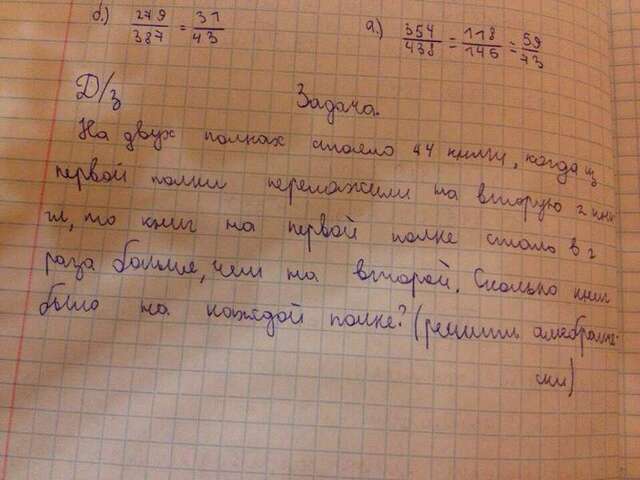 б.) 279/387 = 31/43
а.) 354/438 = 118/146 = 59/73
Д/з Задача.
На двух полках стояло 44 книги, когда из
первой полки переложили на вторую 2 кни
ги, то книг на первой полке стало в 2
раза больше, чем на второй. Сколько книг
было на каждой полке? (решить алгебраиче-
ски)